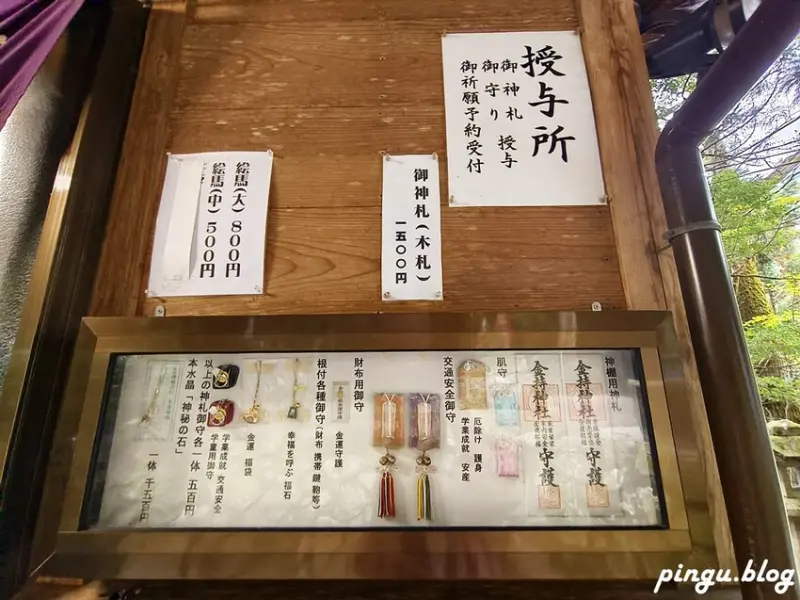 授与所
御神札 授与
御守り
御祈願予約受付
御神札(木札)
一五〇〇円
絵馬(大) 800円
絵馬(中) 500円
神棚用神札
金持神社
守護
金持神社
守護
肌守
厄除け 護身
学業成就 安産
交通安全御守
財布用御守
金運守護
根付各種御守(財布 携帯 鍵 鞄等)
幸福を呼ぶ 福石
金運 福袋
学業成就 交通安全
学業用御守
以上の神札御守各一体 五百円
本水晶「神秘の石」
一体 千五百円
pingu.blog